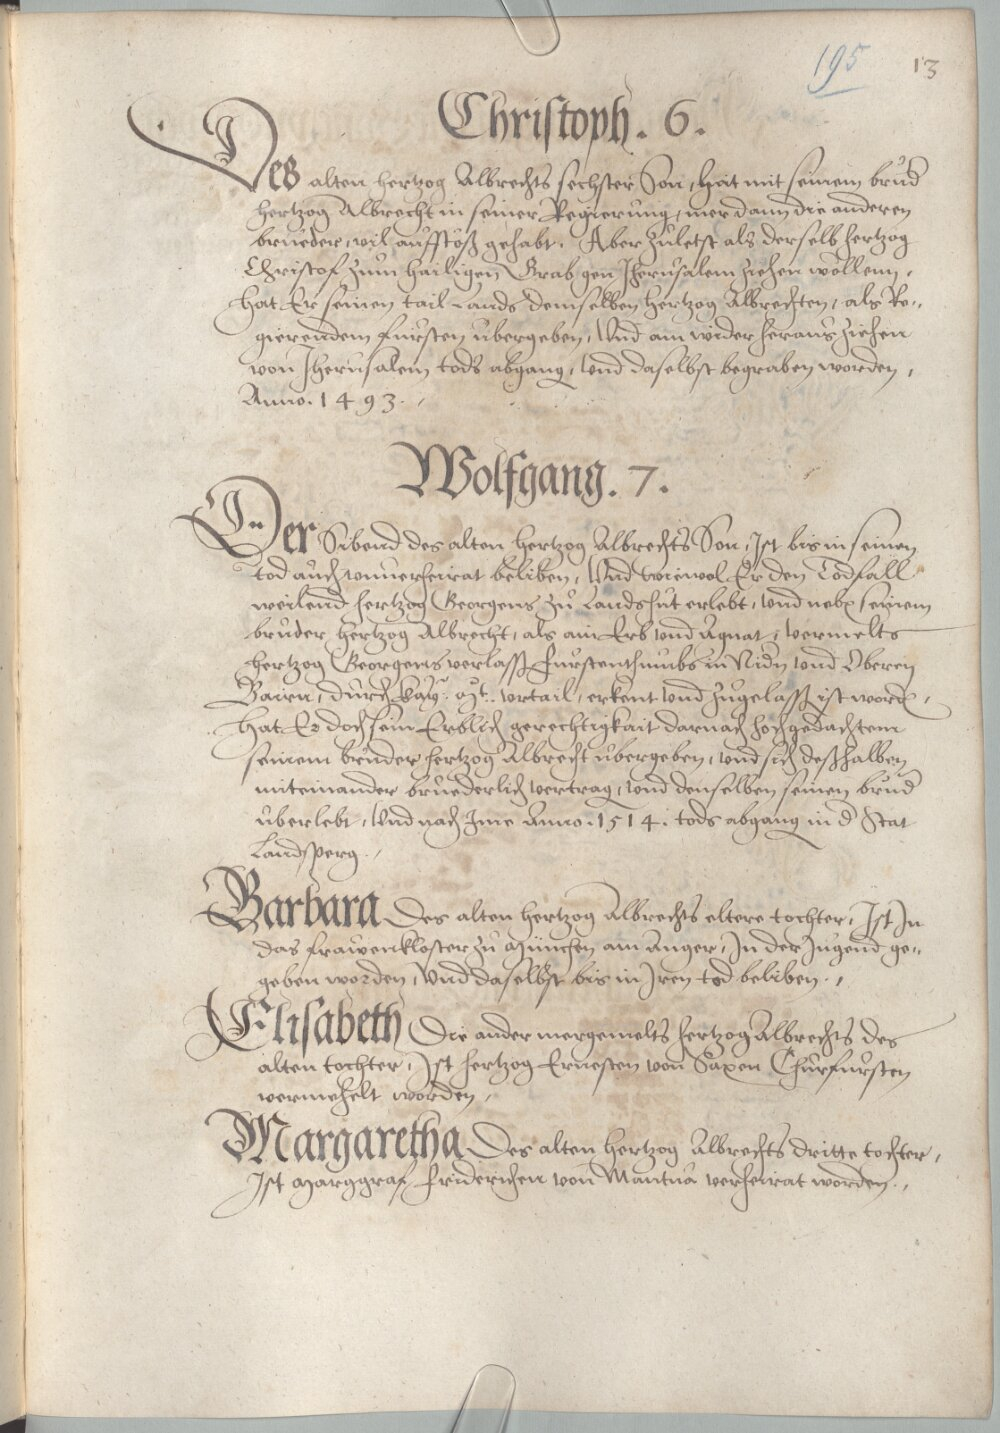 195 13
Christoph. 6.
Des alten hertzog Albrechts sechster Son, hat mit seinem brud
hertzog Albrecht in seiner Regierung, mer dann die anderen
brueder, vil auffstöß gehabt. Aber zuletst als derselb hertzog
Christof zum hailigen Grab gen Jherusalem ziehen wöllenn,
hat Er seinen tail Lands demselben hertzog Albrechten, als Re-
gierendem fürsten übergeben, Und am wider heraus ziehen
von Jherusalem tods abgang, Und daselbst begraben worden,
Anno. 1493.
Wolfgang. 7.
Der Sibend des alten hertzog Albrechts Son, Ist bis in seinen
tod auch unuerheirat beliben, Und wiewol Er den Todfall
weilend hertzog Georgens zu Landshut erlebt, Und nebn seinem
bruder hertzog Albrecht, als ain Erb und Agnat, vermelts
hertzog Georgens verlassn fürstenthumbs in Nidn und Oberen
Bairn, durch kay. mt. urtail, erkent und zugelassn ist wordn,
hat Er doch sein Erblich gerechtigkait darnach hochgedachtem
seinem bruder hertzog Albrecht übergeben, Und sich deßhalben
miteinander bruederlich vertragn, Und denselben seinen brud
überlebt, Und nach Ime Anno. 1514. tods abgang in d Stat
Landsperg.
Barbara Des alten hertzog Albrechts eltere tochter, Ist In
das frawenkloster zu München am Anger, In der Jugend ge-
geben worden, Und daselbst bis in Iren tod beliben.
Elisabeth Die ander mergemelts hertzog Albrechts des
alten tochter, Ist hertzog Ernesten von Saxen Churfürsten
vermehelt worden,
Margaretha Des alten hertzog Albrechts dritte tochter,
Ist Marggraf Friderichen von Mantua verheirat worden.